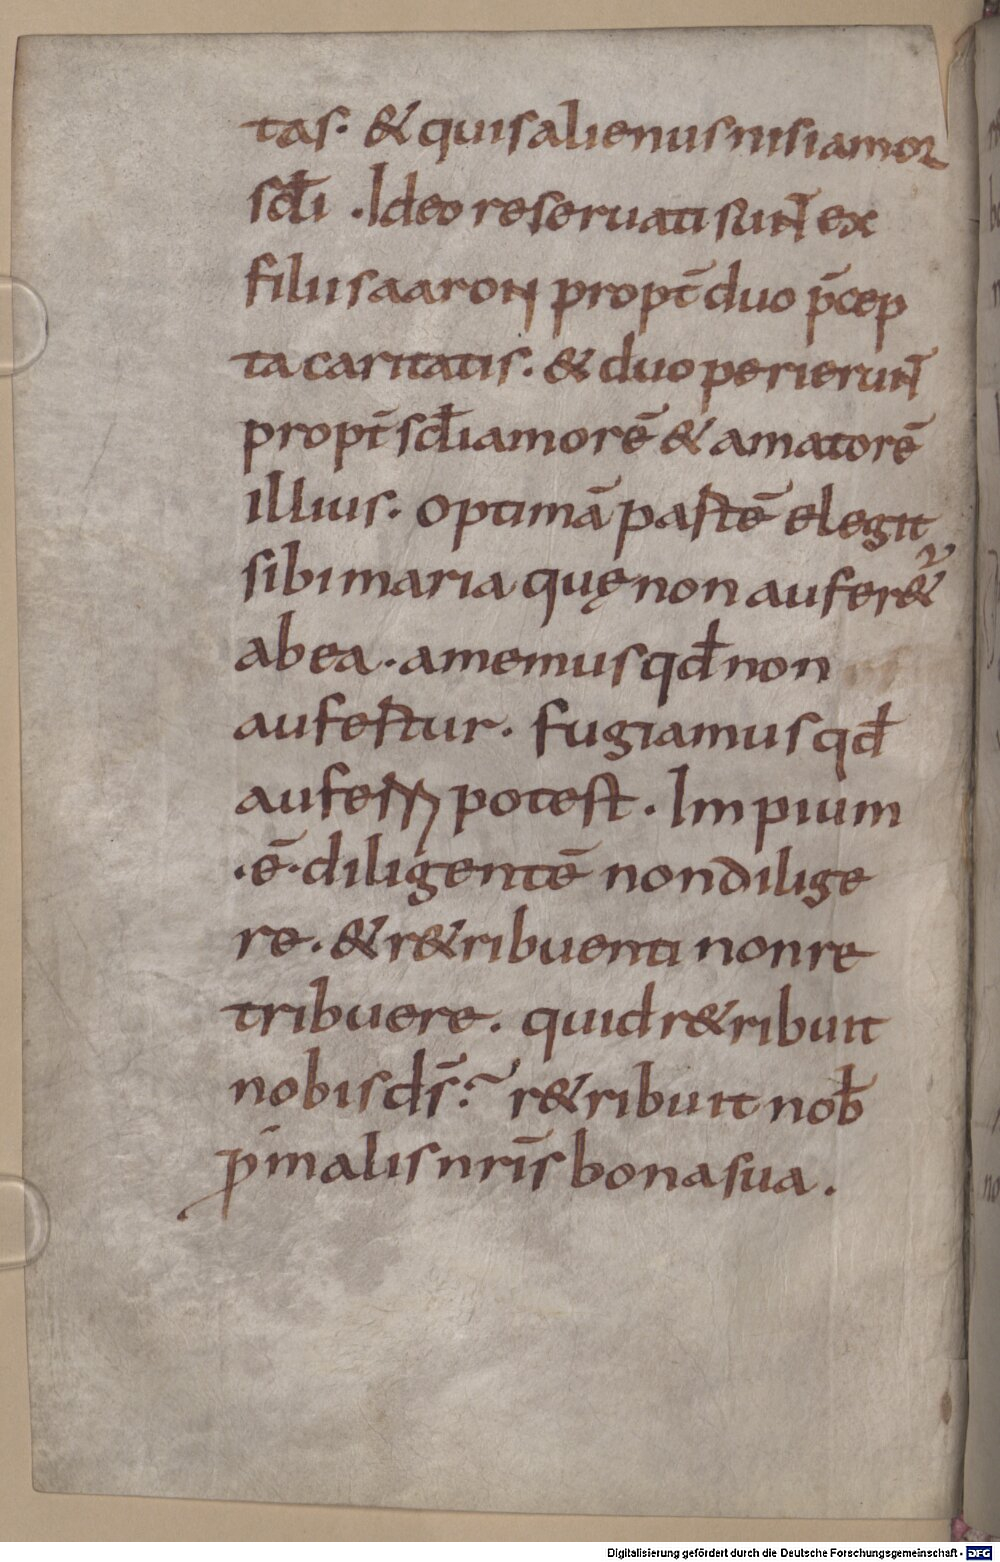 tas. & quis alienus nisi amor
scłi. Ideo reseruati sun̄ ex
filiis aaron propt̄ duo p̄cep
ta caritatis. & duo perierun̄
propt̄ scłi amorē & amatorē
illius. Optimā partē elegit
sibi maria quę non aufer&ur
ab ea. amemus qđ non
aufertur. fugiamus qđ
auferri potest. Impium
.ē. diligentē non dilige
re. & r&ribuenti non re
tribuere. quid r&ribuit
nobis ds̄? r&ribuit nob̄
p̄ malis nr̄is bona sua.
Digitalisierung gefördert durch die Deutsche Forschungsgemeinschaft - DFG